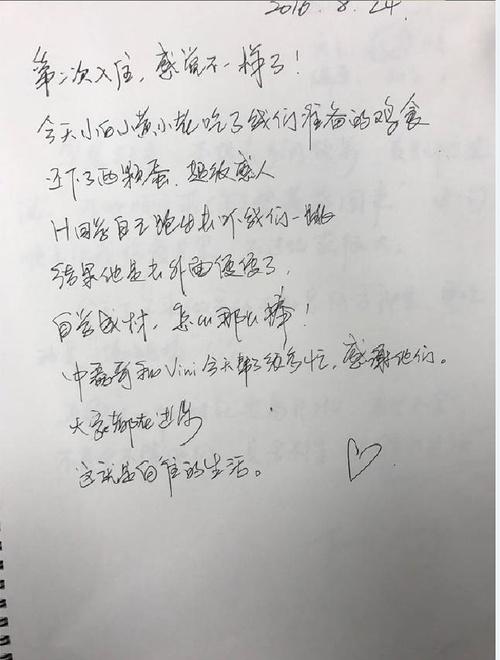 2016.8.24.
第二次入住，感觉不一样了！
今天小白小黄小花吃了我们准备的鸡食
还下了两颗蛋．超级感人
H同学自己跑出去吓我们一跳
结果他是去外面便便了，
自学成材，怎么那么棒！
中磊哥和Vini今天帮了很多忙，感谢他们。
大家都在进步
这就是自在的生活。